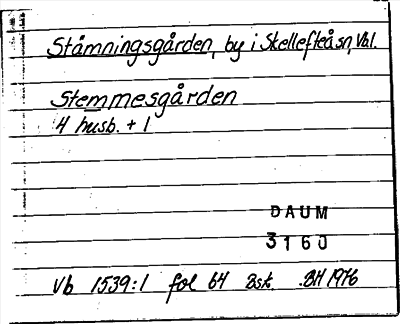 Stämningsgården, by i Skellefteå sn, Vbl.
Stemmesgården
4 husb. + 1
DAUM
3160
Vb 1539:1 fol 64 Bsk. BH 1976